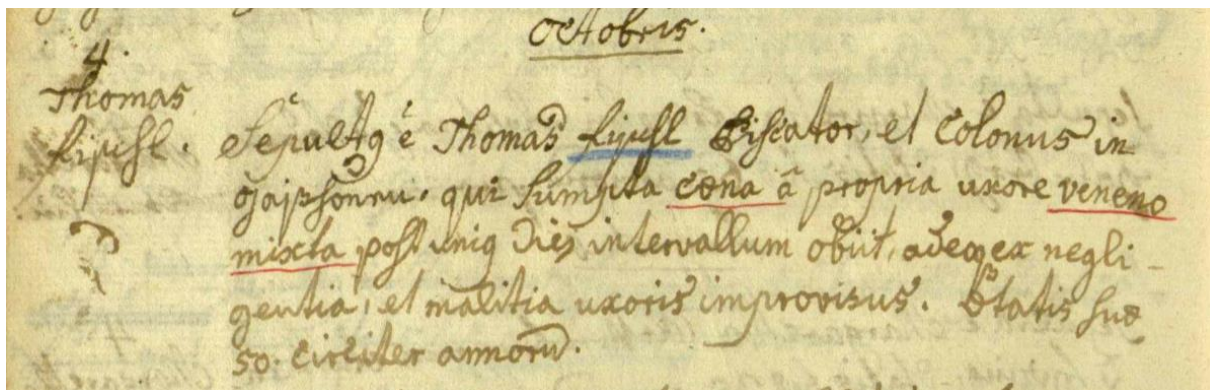 Octobris.
4.
Thomas
Sepultg ē Thomas Piscator, et Colonus in
qui Sumpta cœna à propria uxore veneno
mixta post unig dies intervallum obiit, adeoq ex negli-
gentia, et malitia uxoris improvisus. Ætatis suæ
50. circiter annorū.